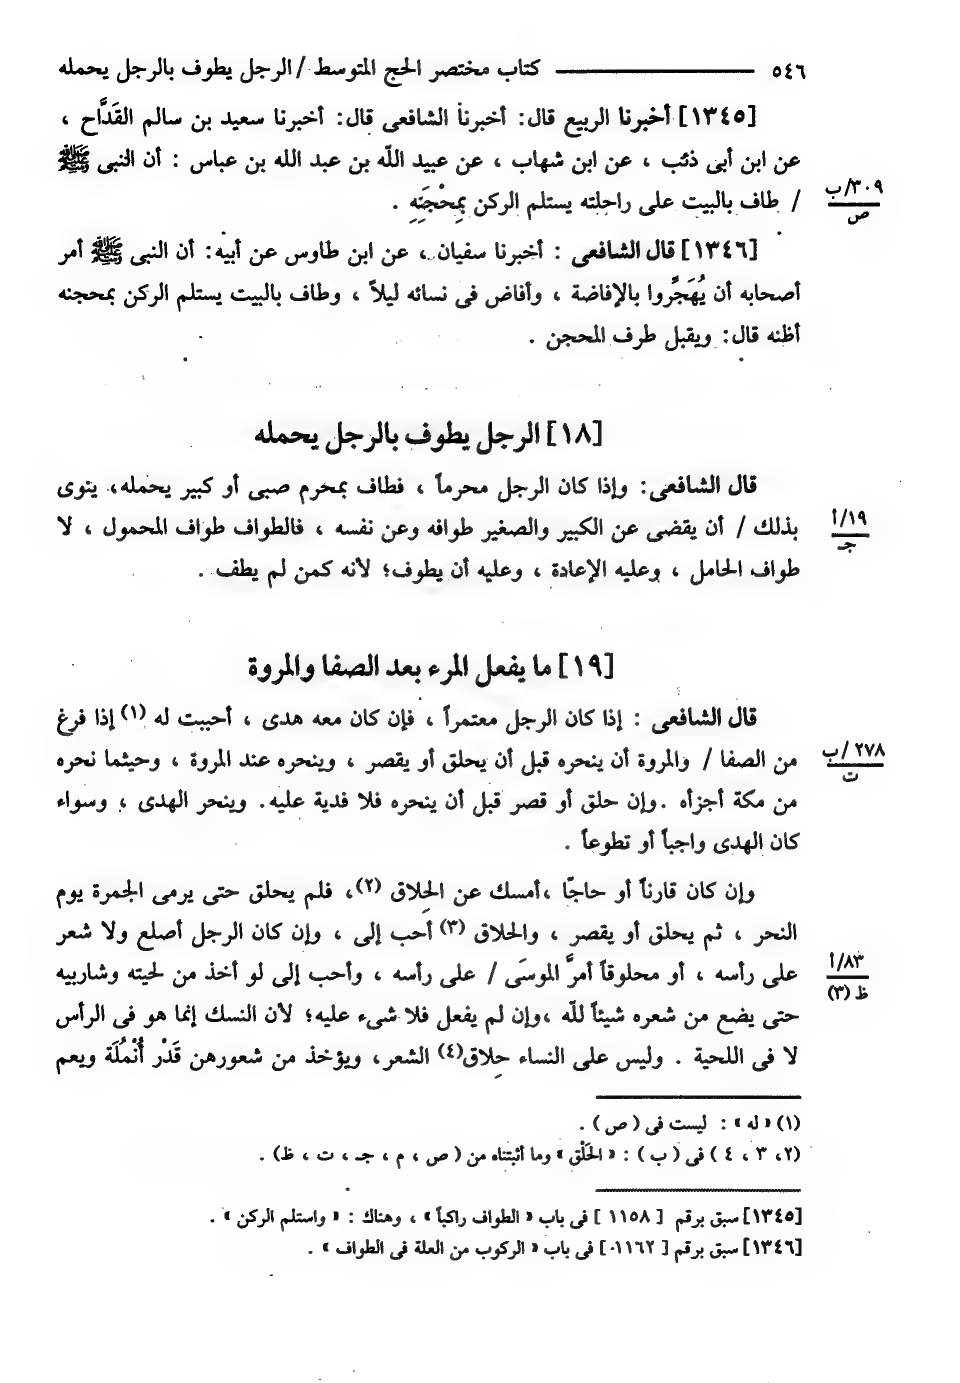 ٥٤٦ ــــــــــــــــ كتاب مختصر الحج المتوسط / الرجل يطوف بالرجل يحمله
[١٣٤٥] أخبرنا الربيع قال: أخبرنا الشافعى قال: أخبرنا سعيد بن سالم القَدَّاح ،
عن ابن أبى ذئب ، عن ابن شهاب ، عن عبيد اللّه بن عبد الله بن عباس : أن النبى ﷺ
/ طاف بالبيت على راحلته يستلم الركن بِمِحْجَنِهِ .
٣٠٩/ب
ص
[١٣٤٦] قال الشافعى : أخبرنا سفيان ، عن ابن طاوس عن أبيه: أن النبى ﷺ أمر
أصحابه أن يُهَجِّروا بالإفاضة ، وأفاض فى نسائه ليلاً ، وطاف بالبيت يستلم الركن بمحجنه
أظنه قال: ويقبل طرف المحجن .
[١٨] الرجل يطوف بالرجل يحمله
قال الشافعى: وإذا كان الرجل محرماً ، فطاف بمحرم صبى أو كبير يحمله، ينوى
بذلك / أن يقضى عن الكبير والصغير طوافه وعن نفسه ، فالطواف طواف المحمول ، لا
١٩/أ
جـ
طواف الحامل ، وعليه الإعادة ، وعليه أن يطوف؛ لأنه كمن لم يطف .
[١٩] ما يفعل المرء بعد الصفا والمروة
قال الشافعى : إذا كان الرجل معتمراً ، فإن كان معه هدى ، أحببت له (١) إذا فرغ
من الصفا / والمروة أن ينحره قبل أن يحلق أو يقصر ، وينحره عند المروة ، وحيثما نحره
٢٧٨/ب
ت
من مكة أجزأه .وإن حلق أو قصر قبل أن ينحره فلا فدية عليه. وينحر الهدى ، وسواء
كان الهدى واجباً أو تطوعاً .
وإن كان قارناً أو حاجًا ،أمسك عن الحِلاق (٢)، فلم يحلق حتى يرمى الجمرة يوم
النحر ، ثم يحلق أو يقصر ، والحلاق (٣) أحب إلى ، وإن كان الرجل أصلع ولا شعر
على رأسه ، أو محلوقاً أمرَّ الموسَى / على رأسه ، وأحب إلى لو أخذ من لحيته وشاربيه
٨٣/أ
ظ (٣)
حتى يضع من شعره شيئاً للّه ،وإن لم يفعل فلا شىء عليه؛ لأن النسك إنما هو فى الرأس
لا فى اللحية . وليس على النساء حِلاق(٤) الشعر، ويؤخذ من شعورهن قَدْر أُنْمُلَة ويعم
(١) « له » : ليست فى ( ص ) .
(٢، ٣ ، ٤ ) فى ( ب ) : « الحَلْق » وما أثبتناه من ( ص ، م ، جـ ، ت ، ظ) .
[١٣٤٥] سبق برقم [ ١١٥٨ ] فى باب « الطواف راكباً » ، وهناك : « واستلم الركن » .
[١٣٤٦] سبق برقم [ ١١٦٢] فى باب « الركوب من العلة فى الطواف » .